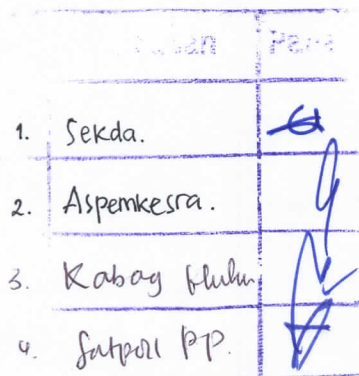 1. Sekda.
2. Aspemkesra.
3. Kabag Hukum
4. Satpol PP.